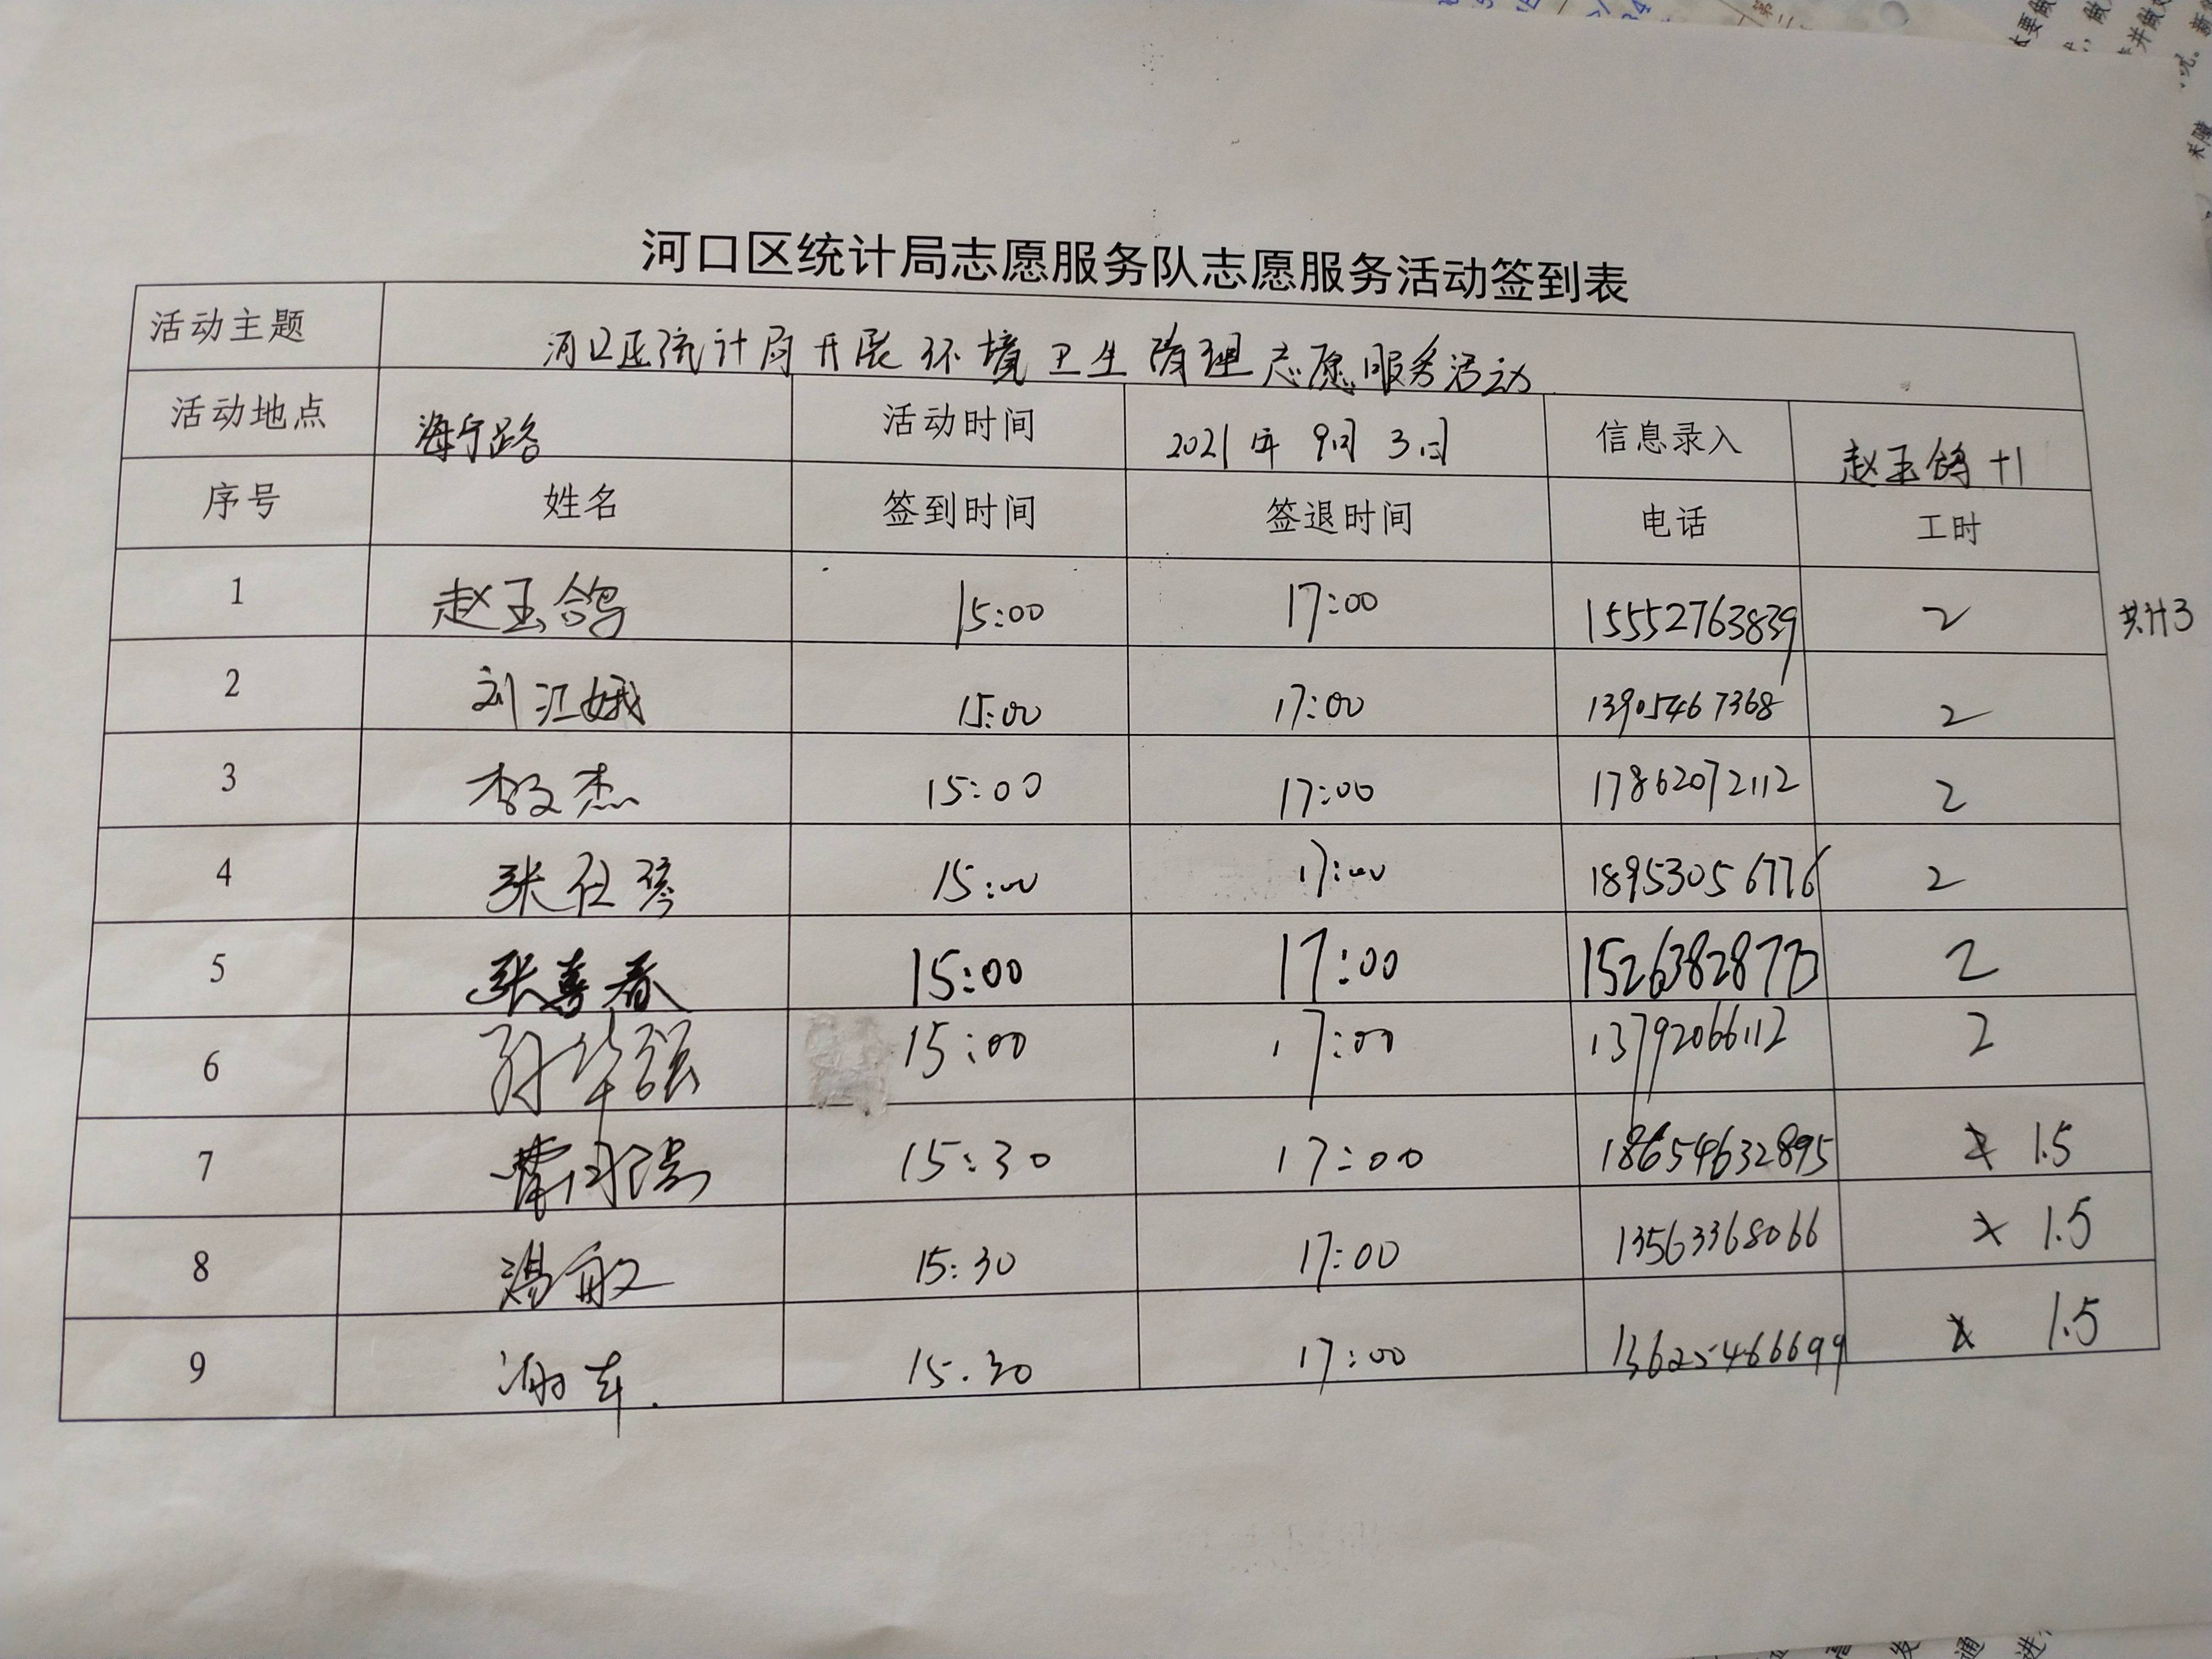 河口区统计局志愿服务队志愿服务活动签到表
活动主题 河口区统计局开展环境卫生清理志愿服务活动
活动地点 海宁路 活动时间 2021年9月3日 信息录入 赵玉鸽+1
序号 姓名 签到时间 签退时间 电话 工时
1 赵玉鸽 15:00 17:00 15552763839 2 共计3
2 刘江娥 15:00 17:00 13905467368 2
3 李文杰 15:00 17:00 17862072112 2
4 张 15:00 17:00 18953056776 2
5 张喜春 15:00 17:00 2
6 孙华强 15:00 17:00 13792066112 2
7 15:30 17:00 18654632895 1.5
8 汤敏 15:30 17:00 13563368066 1.5
9 15:30 17:00 13625466699 1.5